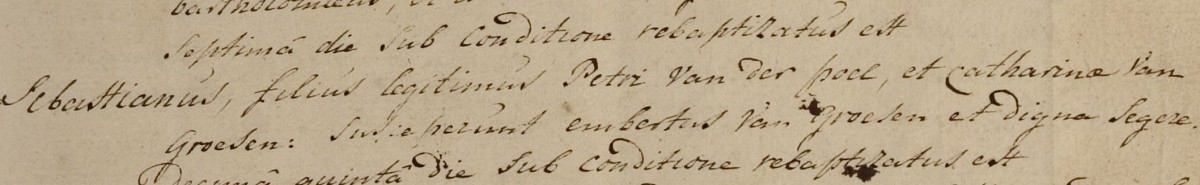 bartholomæus,
Septimâ die Sub Conditione rebaptizatus est
Sebastianus, filius legitimus Petri Van der poel, et Catharinæ Van
Groesen: Susceperunt embertus Van Groesen et digna Segere.
Decimâ quintâ die Sub Conditione rebaptizatus est